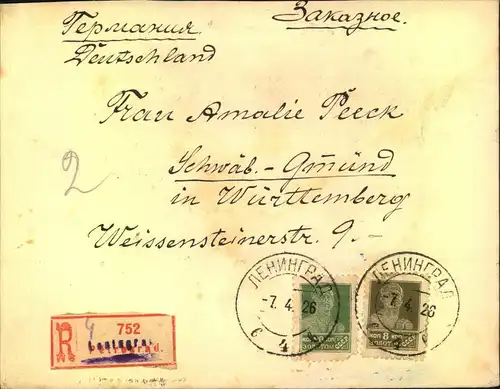 Германия.
Заказное.
Deutschland
Frau Amalie Peeck
Schwäb.-Gmünd
in Württemberg
Weissensteinerstr. 9.-
2
ЛЕНИНГРАД
-7.4.26
ЛЕНИНГРАД
-7.4.26
R
752
8